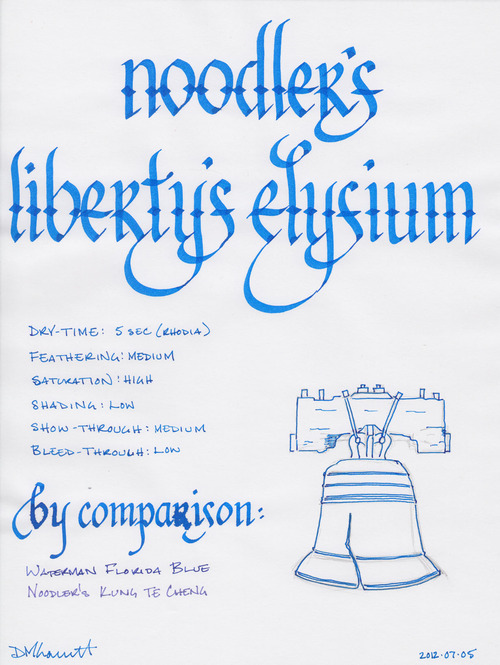 noodler's
liberty's elysium
DRY-TIME: 5 SEC (RHODIA)
FEATHERING: MEDIUM
SATURATION: HIGH
SHADING: LOW
SHOW-THROUGH: MEDIUM
BLEED-THROUGH: LOW
by comparison:
WATERMAN FLORIDA BLUE
NOODLER'S KUNG TE CHENG
2012·07·05